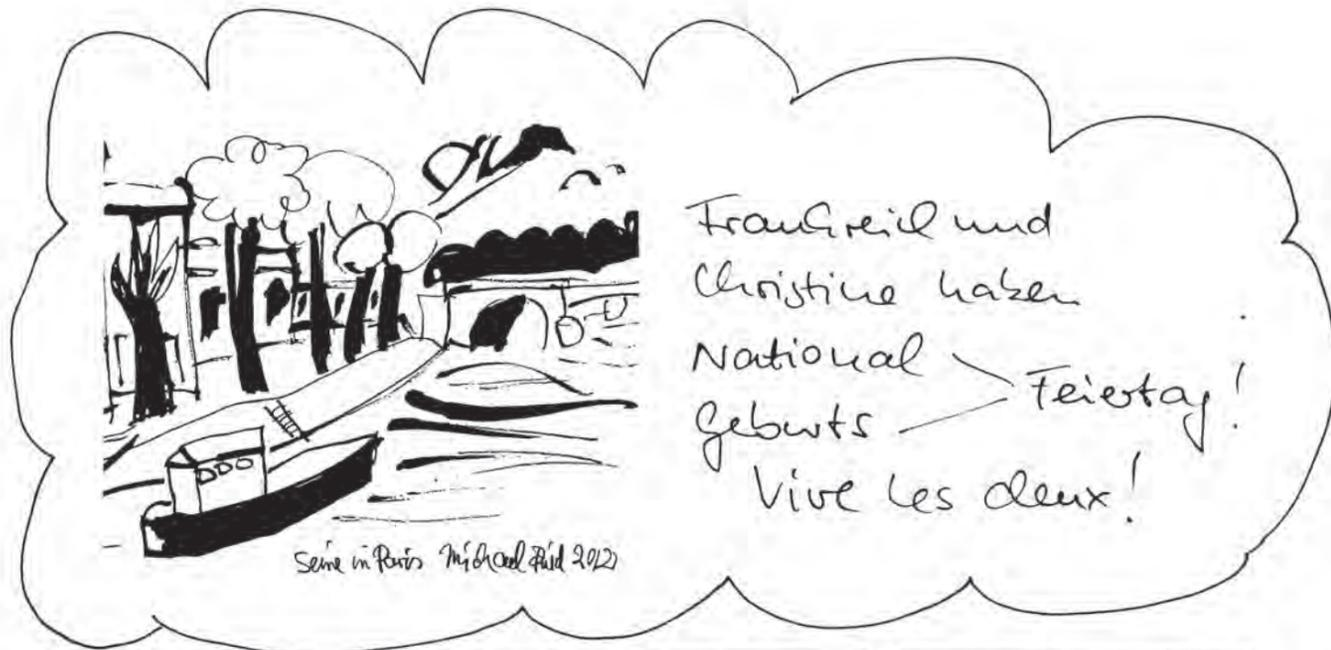 Seine in Paris Michael 2012
Frankreich und
Christine haben
National
Geburts
Feiertag!
Vive les deux!